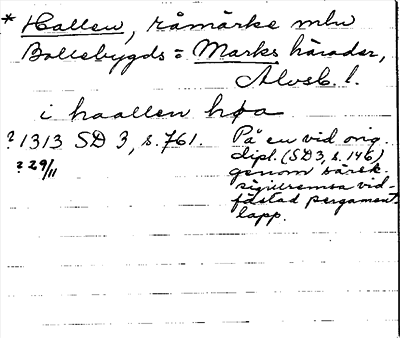 * Hallen, råmärke mln
Bollebygds = Marks härader,
Älvsb. l.
i haallen høa
? 1313 SD 3, s. 761. På en vid orig.
? 29/11 dipl. (SD 3, s. 146)
genom särsk.
sigillremsa vid-
fästad pergament
lapp.